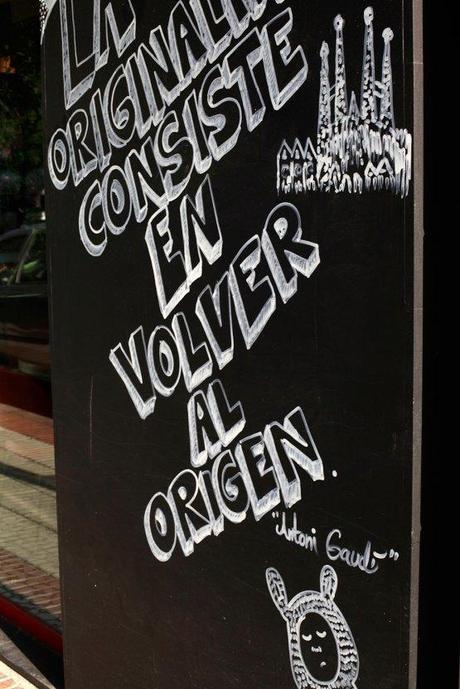 LA
ORIGINALIDAD
CONSISTE
EN
VOLVER
AL
ORIGEN.
"Antoni Gaudí"